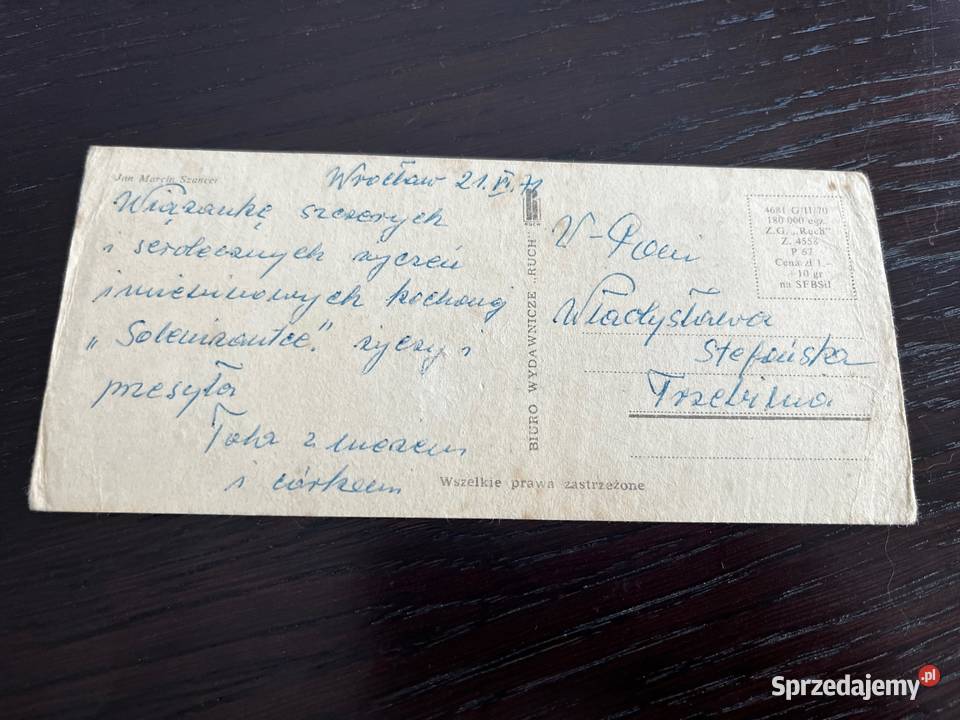 Jan Marcin Szancer
Wrocław 21.VI.71
Wiązankę szczerych
i serdecznych życzeń
imieninowych kochanej
„Solenizantce" życzy i
przesyła
z mężem
i córkam
BIURO WYDAWNICZE „RUCH"
W-Pani
Władysława
Stefańska
Trzebinia
4681 G/II/70
180 000 egz.
Z.G. „Ruch"
Z. 4558
P 67
Cena zł 1.–
+ 10 gr
na SFBSiI
Wszelkie prawa zastrzeżone
Sprzedajemy.pl